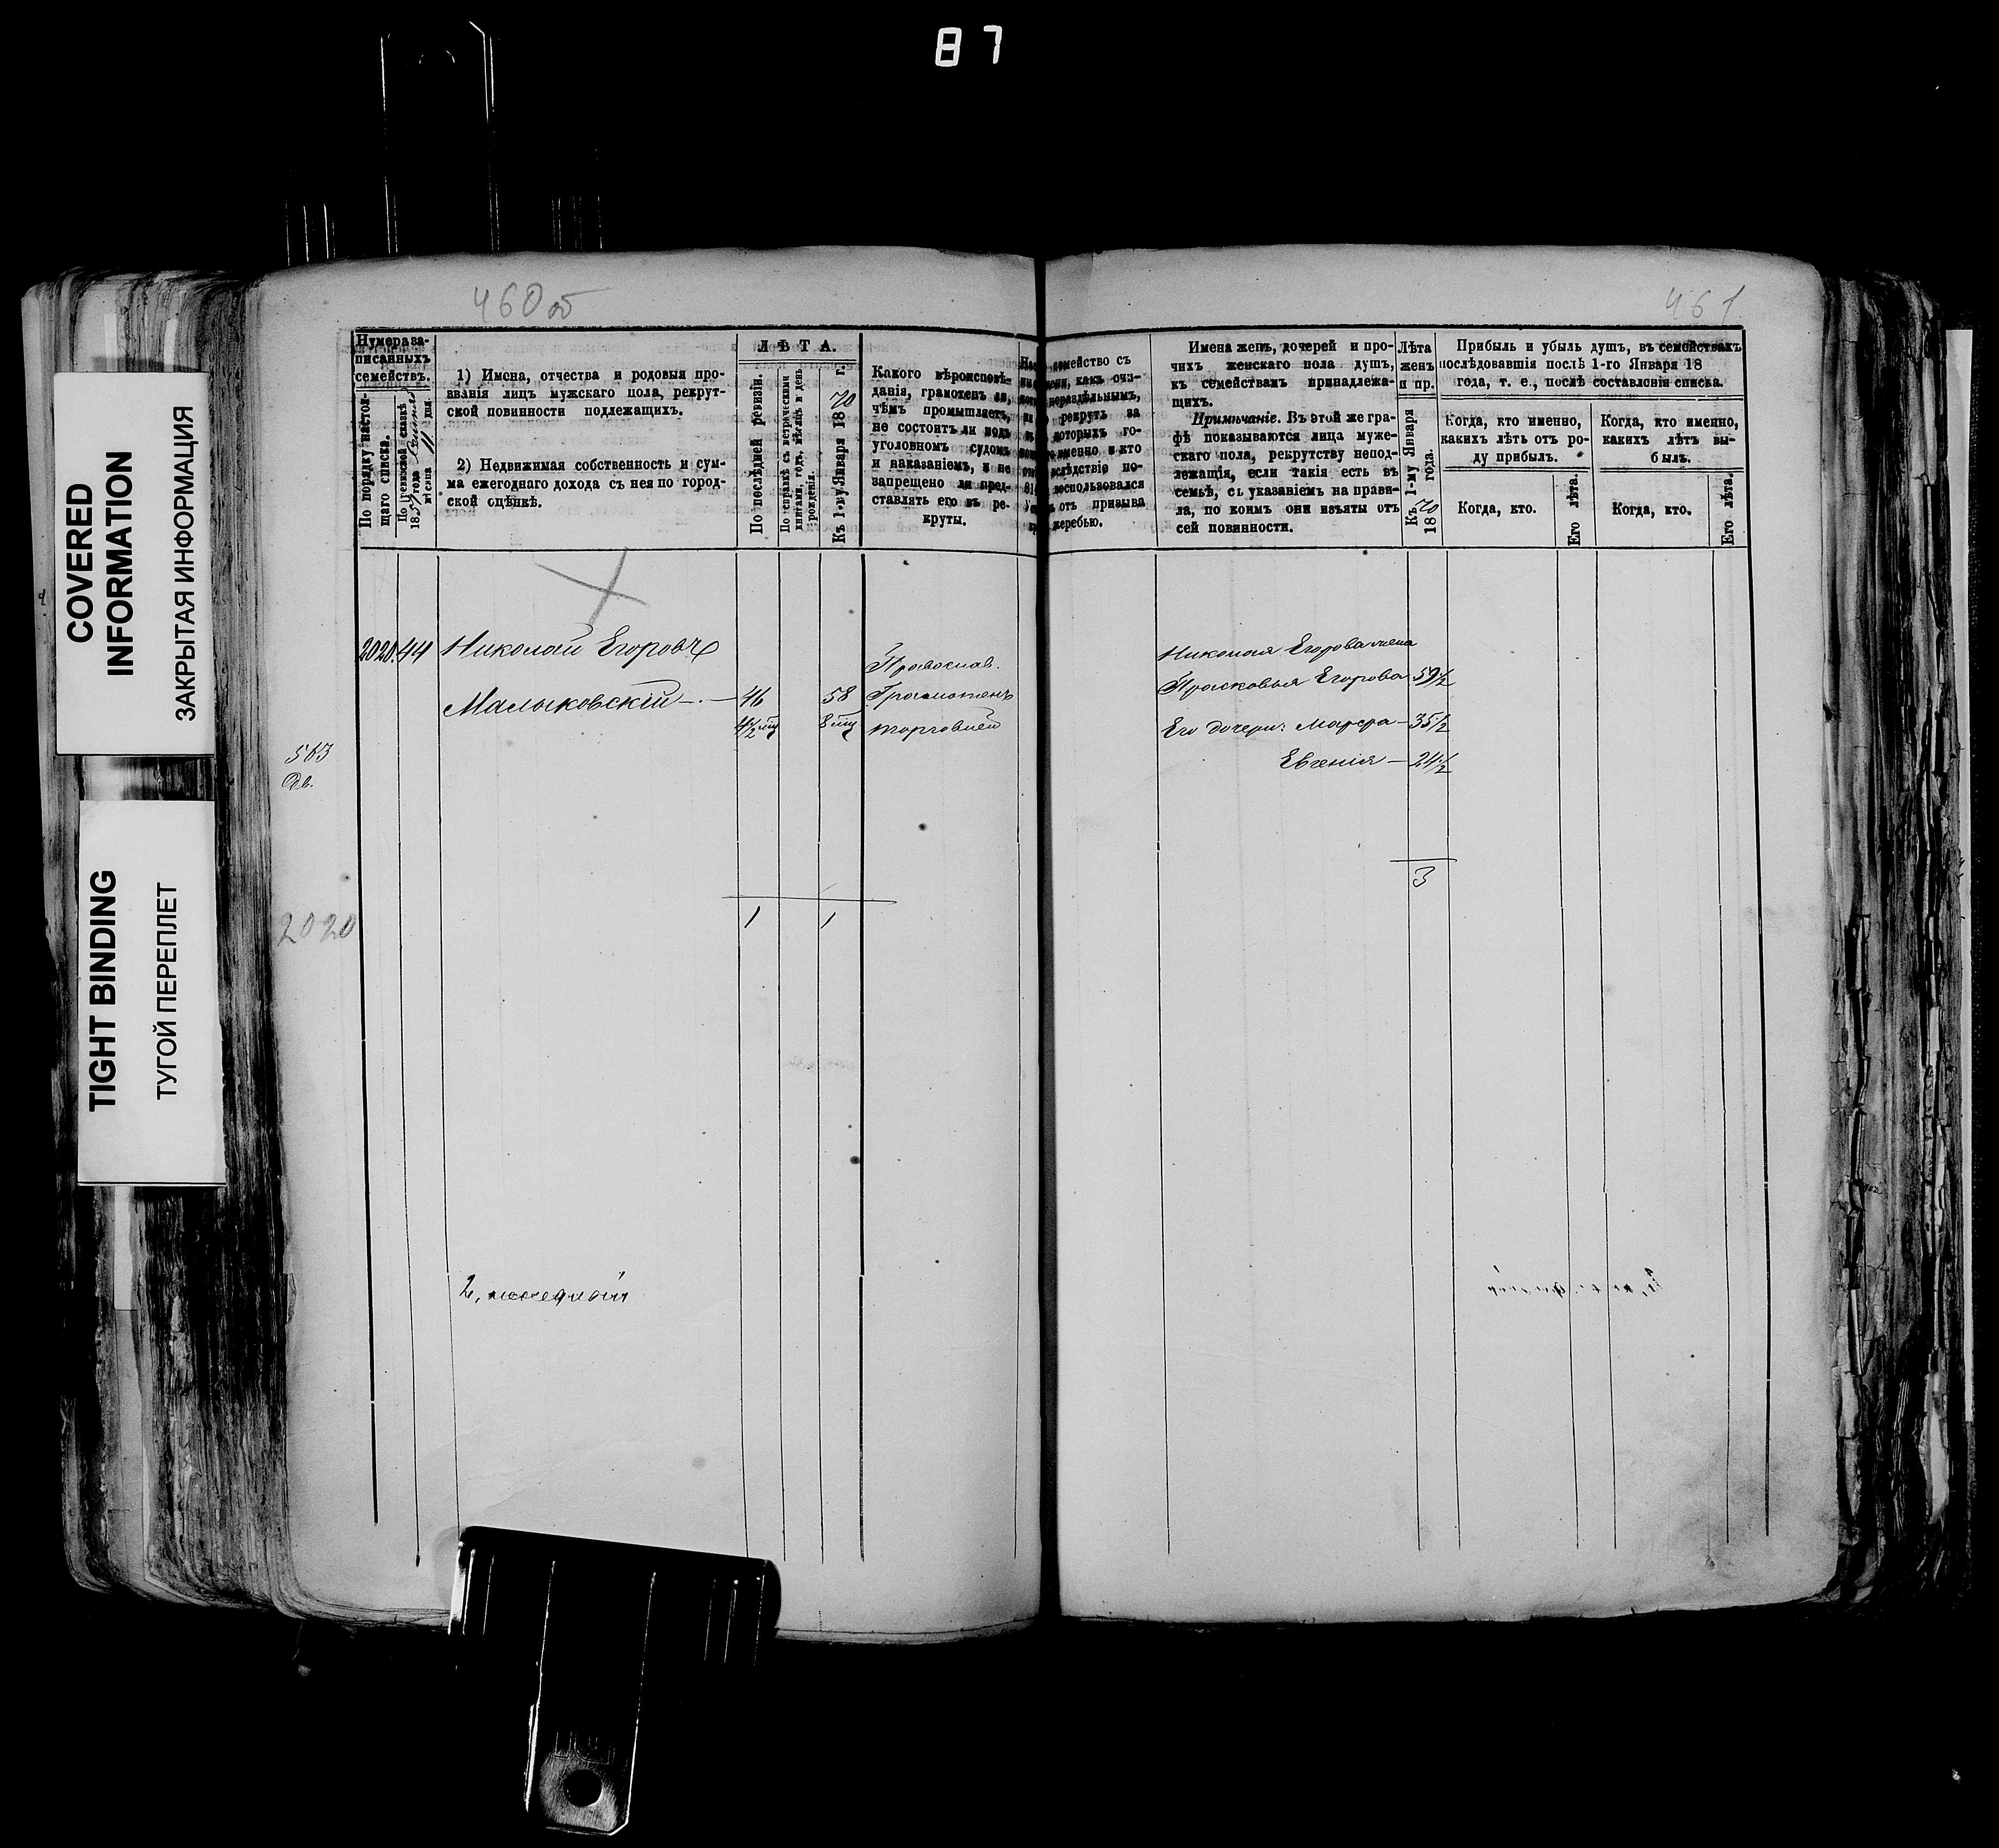 87
COVERED
INFORMATION
ЗАКРЫТАЯ ИНФОРМАЦИЯ
TIGHT BINDING
ТУГОЙ ПЕРЕПЛЕТ
460 об
Нумера за-
писанныхъ
семействъ.
По порядку настоя-
щаго списка.
По ревизской сказкѣ
185 года
мѣсяца 11 дня.
1) Имена, отчества и родовыя про-
званія лицъ мужскаго пола, рекрут-
ской повинности подлежащихъ.
2) Недвижимая собственность и сум-
ма ежегоднаго дохода съ нея по город-
ской оцѣнкѣ.
ЛѢТА.
По послѣдней ревизіи.
По справкѣ съ метрическими
книгами, годъ, мѣсяцъ и день
рожденія.
Къ 1-му Января 1870 г.
Какого вѣроисповѣ-
данія, грамотенъ ли,
чѣмъ промышляетъ,
не состоитъ ли подъ
уголовномъ судомъ
и наказаніемъ, и не
запрещено ли пред-
ставлять его въ ре-
круты.
2020. 44 Николай Егоровъ
Малыковскій 46 58
4½ мц 8 мц
Православ.
Грамотенъ
торговлей
563
Дв.
2020
1 1
2,
461
семейство съ
какъ очи-
нераздѣльнымъ,
рекрутъ за
которыхъ го-
именно и кто
вслѣдствіе по-
воспользовался
отъ призыва
жеребью.
Имена женъ, дочерей и про-
чихъ женскаго пола душъ,
къ семействамъ принадлежа-
щихъ.
Примѣчаніе. Въ этой же гра-
фѣ показываются лица муже-
скаго пола, рекрутству непод-
лежащія, если такія есть въ
семьѣ, съ указаніемъ на прави-
ла, по коимъ они изъяты отъ
сей повинности.
Лѣта
женъ
и пр.
Къ 1-му Января
1870 года.
Прибыль и убыль душъ, въ семействахъ
послѣдовавшія послѣ 1-го Января 18
года, т. е., послѣ составленія списка.
Когда, кто именно,
какихъ лѣтъ отъ ро-
ду прибылъ.
Когда, кто именно,
какихъ лѣтъ вы-
былъ.
Когда, кто.
Его лѣта.
Когда, кто.
Его лѣта.
Николая Егорова жена
Прасковья Егорова 59½
Его дочери: Марфа 35½
Евгенія 24½
3